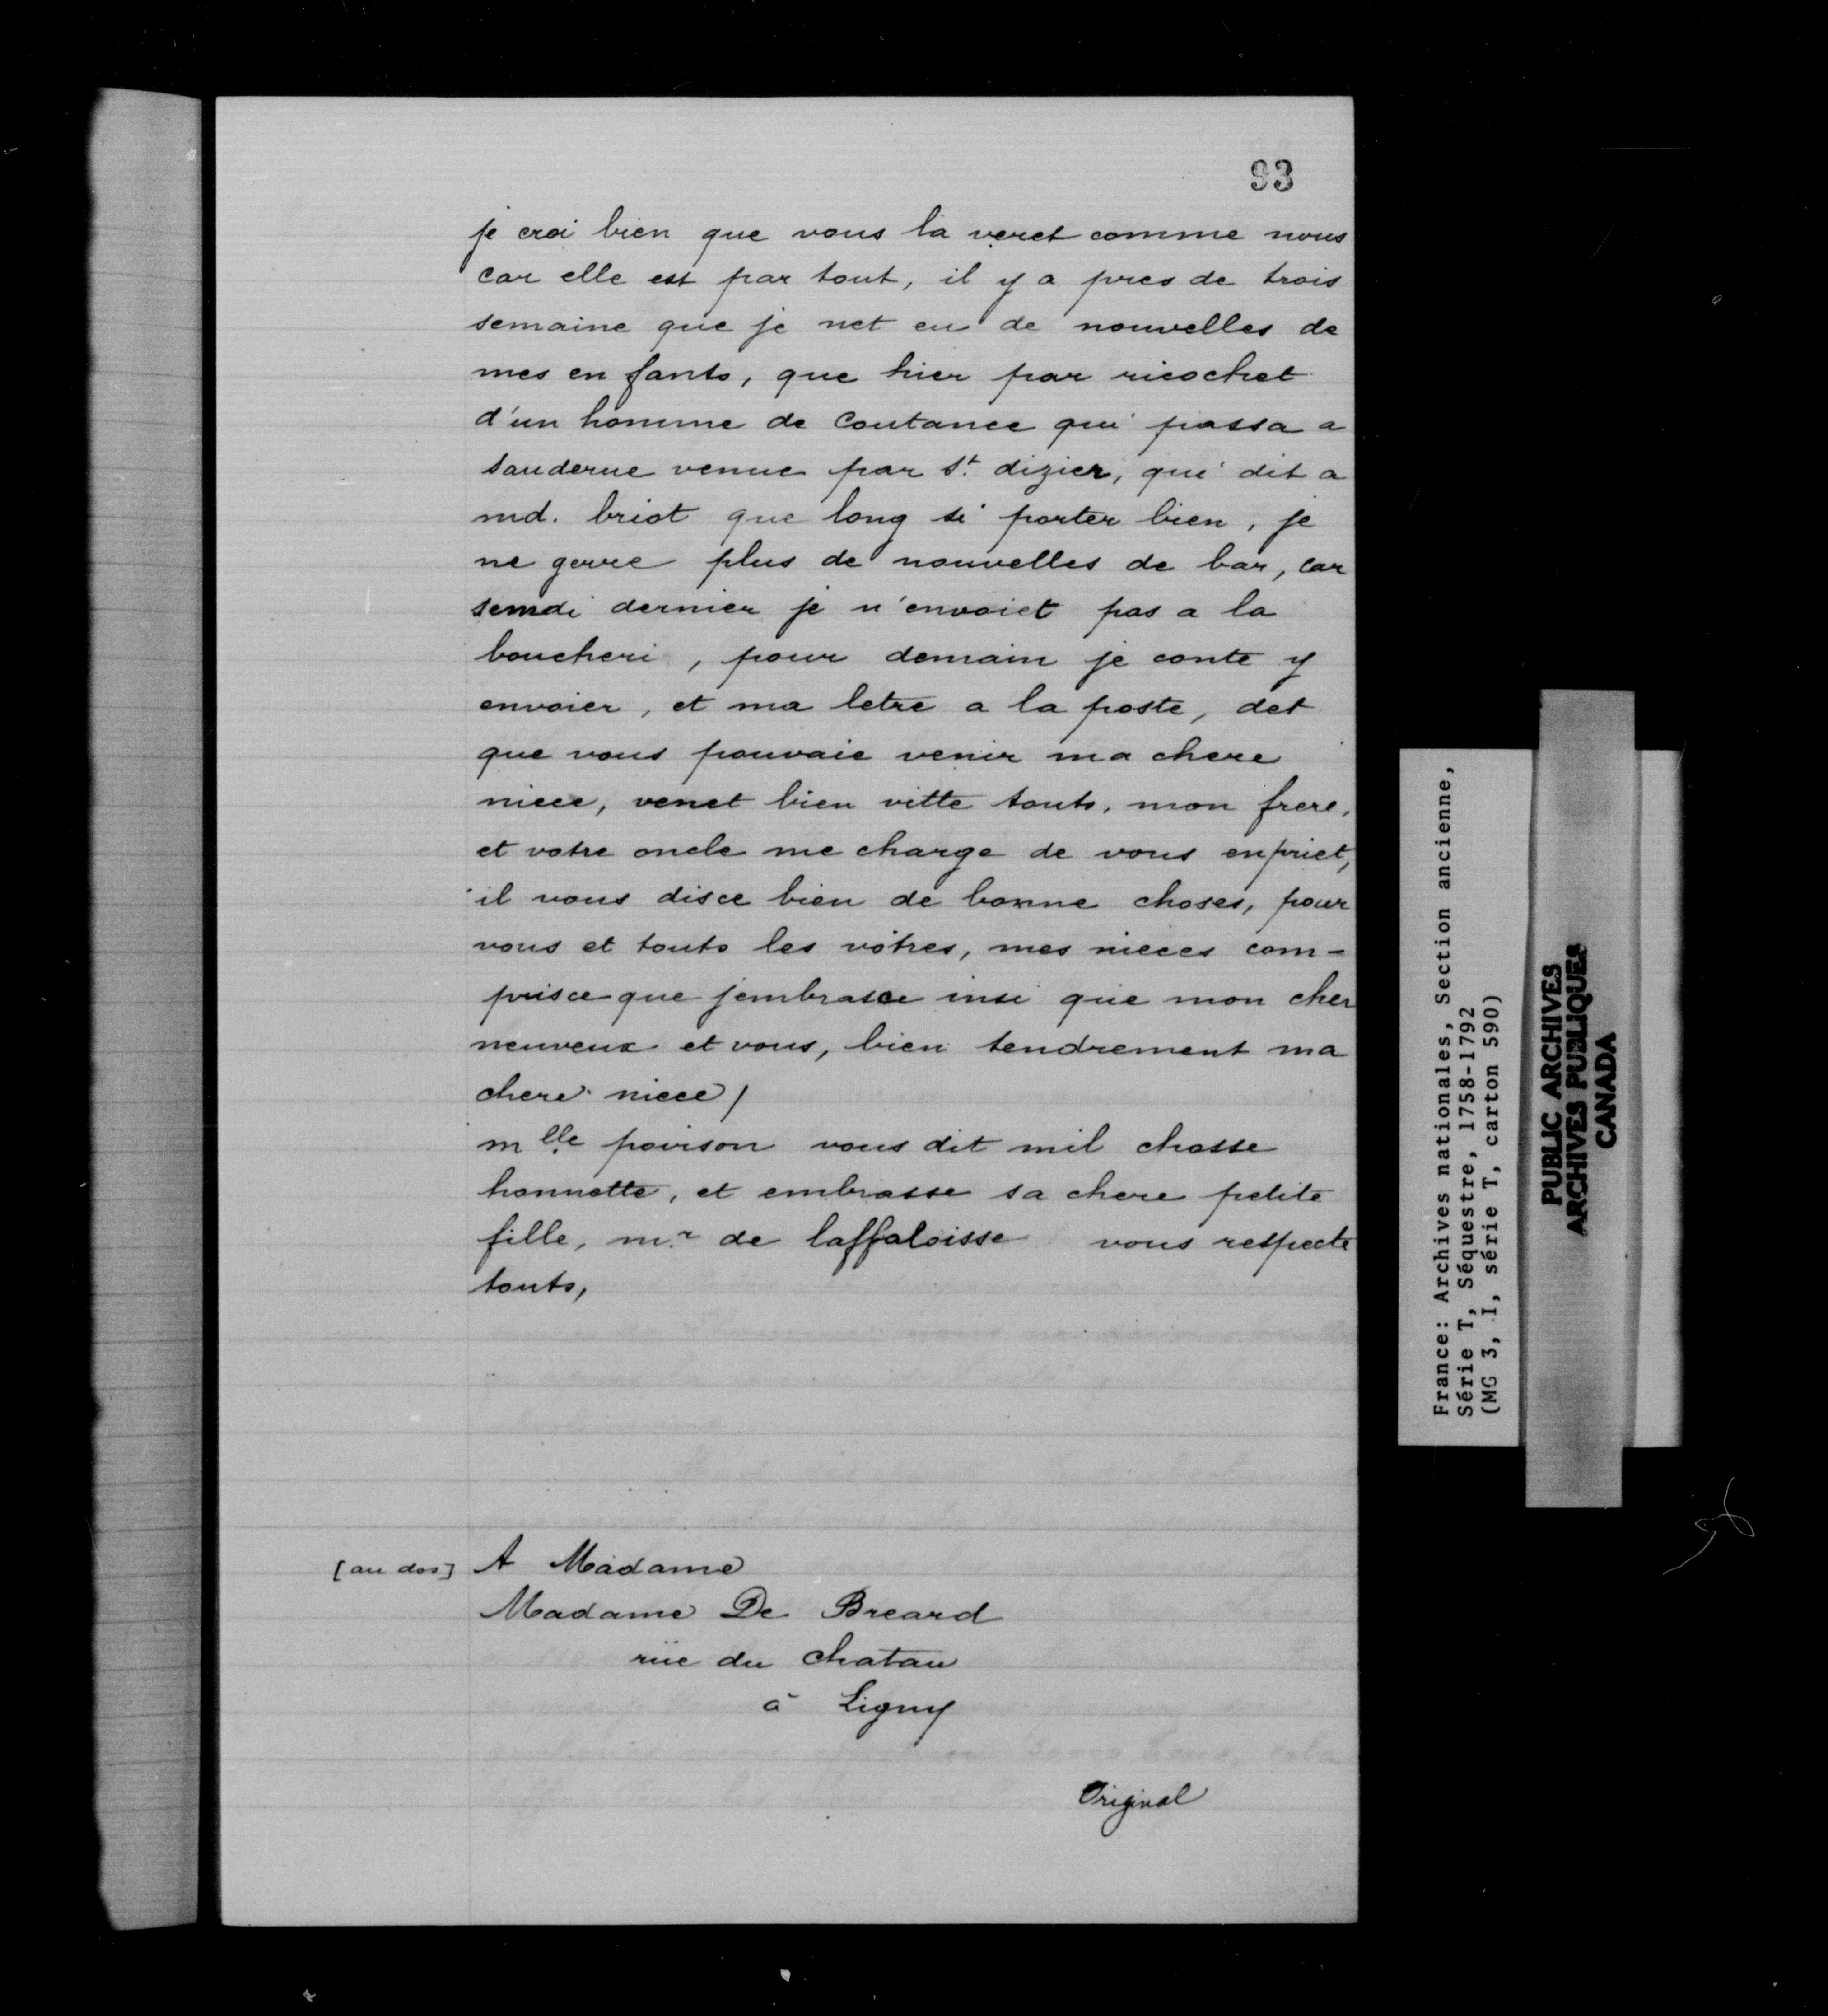 93
je croi bien que vous la veret comme nous
car elle est par tout, il y a pres de trois
semaine que je net eu de nouvelles de
mes en fants, que hier par ricochet
d'un homme de Coutance qui passa a
sauderue venue par St. dizier, qui dit a
md. briot que long si porter bien, je
ne gerre plus de nouvelles de bar, car
semdi dernier je n'envoiet pas a la
boucheri, pour demain je conte y
envoier, et ma letre a la poste, det
que vous pouvaie venir ma chere
niece, venet bien vitte touts, mon frere,
et votre oncle me charge de vous enpriet,
il vous disce bien de bonne choses, pour
vous et touts les vôtres, mes nieces com-
prisce que jembrasce insi que mon cher
neuveux et vous, bien tendrement ma
chere niece /
mlle poirson vous dit mil chosse
honnette, et embrasse sa chere petite
fille, mr de laffaloisse vous respecte
touts,
[au dos] A Madame
Madame De Breard
rüe du Chatau
à Ligny
Original
France: Archives nationales, Section ancienne,
Série T, Séquestre, 1758-1792
(MG 3, I, série T, carton 590)
PUBLIC ARCHIVES
ARCHIVES PUBLIQUES
CANADA